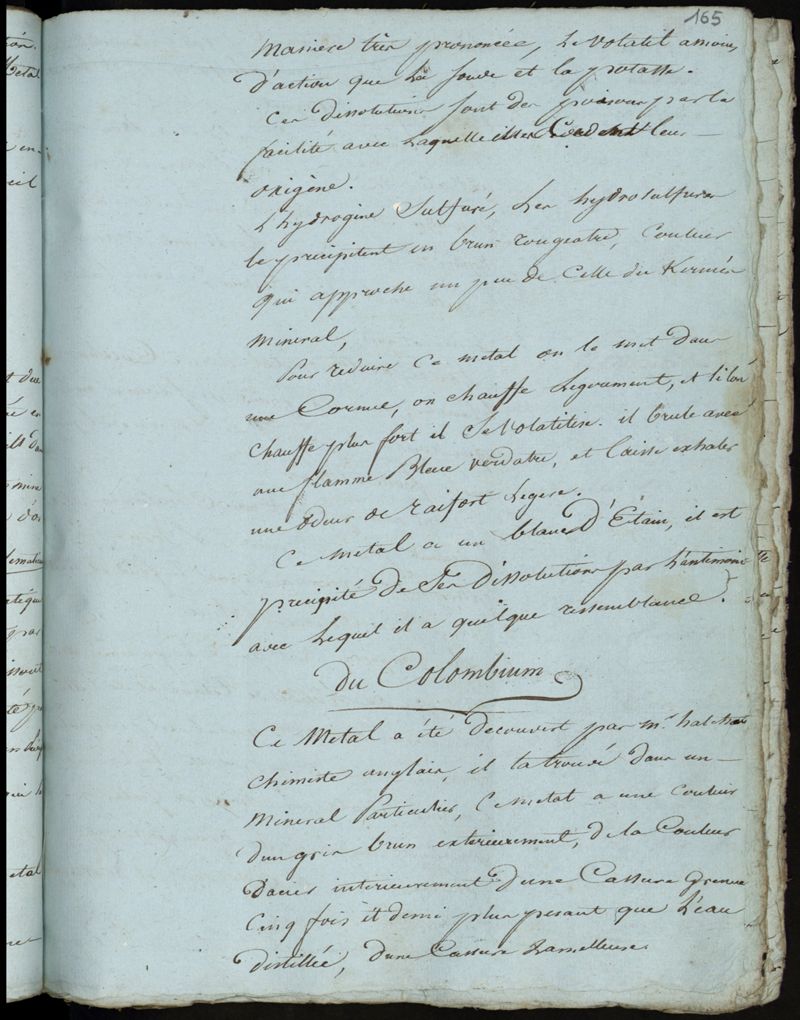 165
maniere très prononcée, le volatil a moins
d'action que la soude et la potasse.
Ces dissolutions sont des poisons par la
facilité avec laquelle elles cedent leur
oxigène.
L'hydrogène sulfuré, les hydrosulfures
le precipitent en brun rougeatre, couleur
qui approche un peu de celle du Kermès
mineral,
Pour reduire ce metal on le met dans
une Cornue, on chauffe legerement, et si l'on
chauffe plus fort il se volatilise. il brule avec
une flamme Bleue verdatre, et laisse exhaler
une odeur de raifort legere.
Ce metal a un blanc D'Etain, il est
precipité de ses dissolutions par l'antimoine
avec lequel il a quelque ressemblance.
du Colombium
Ce Metal a été decouvert par mr. hatchett
chimiste anglais, il l'a trouvé dans un
Mineral Particulier, Ce metal a une couleur
d'un gris brun exterieurement, de la Couleur
D'acier interieurement d'une Cassure grenue
Cinq fois et demi plus pesant que l'eau
distillée, d'une Cassure Lamelleuse